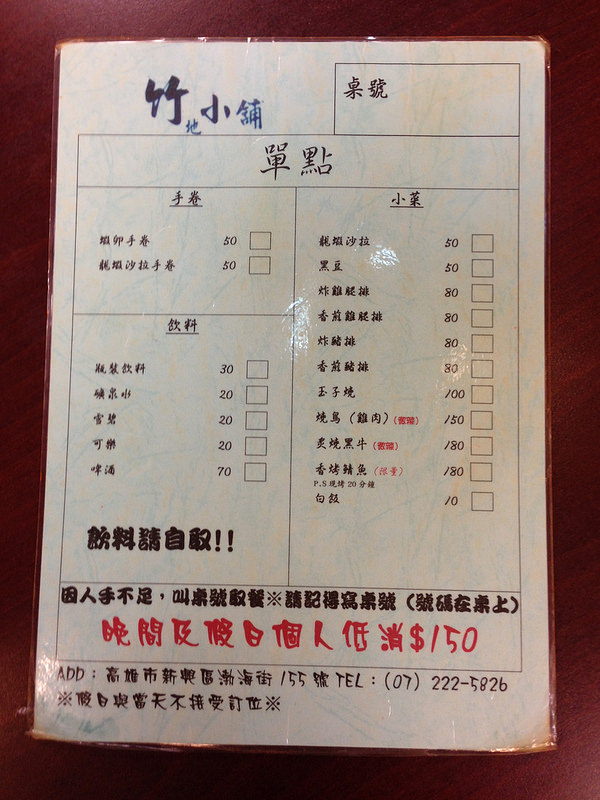 竹地小舖
桌號
單點
手卷
蝦卵手卷 50
龍蝦沙拉手卷 50
飲料
瓶裝飲料 30
礦泉水 20
雪碧 20
可樂 20
啤酒 70
飲料請自取!!
小菜
龍蝦沙拉 50
黑豆 50
炸雞腿排 80
香煎雞腿排 80
炸豬排 80
香煎豬排 80
玉子燒 100
燒鳥(雞肉) 150
炙燒黑牛 180
香烤鯖魚(限量) 180
P.S現烤20分鐘
白飯 10
因人手不足，叫桌號取餐※請記得寫桌號(號碼在桌上)
晚間及假日個人低消$150
ADD：高雄市新興區渤海街155號 TEL：(07) 222-5826
※假日與當天不接受訂位※